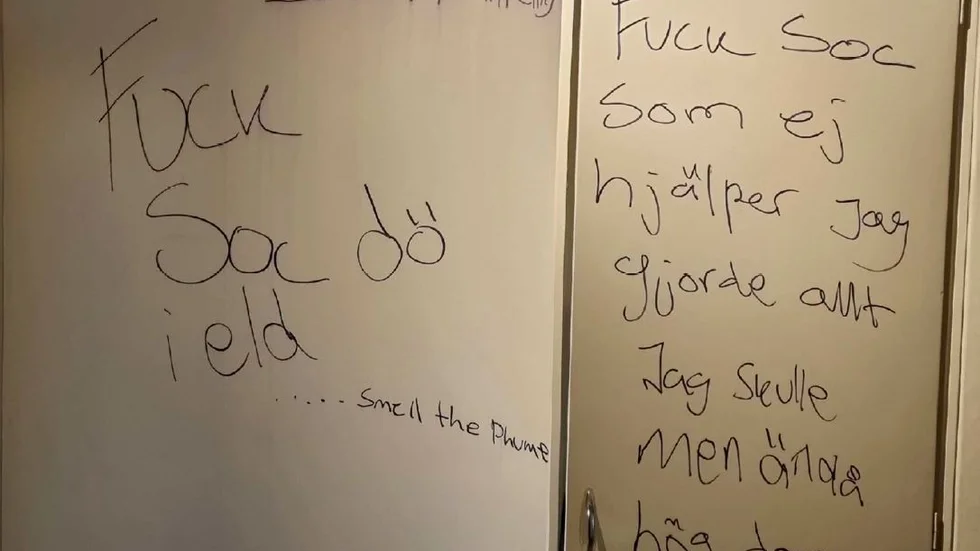 Fuck
Soc dö
i eld
..... Smell the Phume
Fuck Soc
Som ej
hjälper Jag
gjorde allt
Jag Skulle
Men ändå